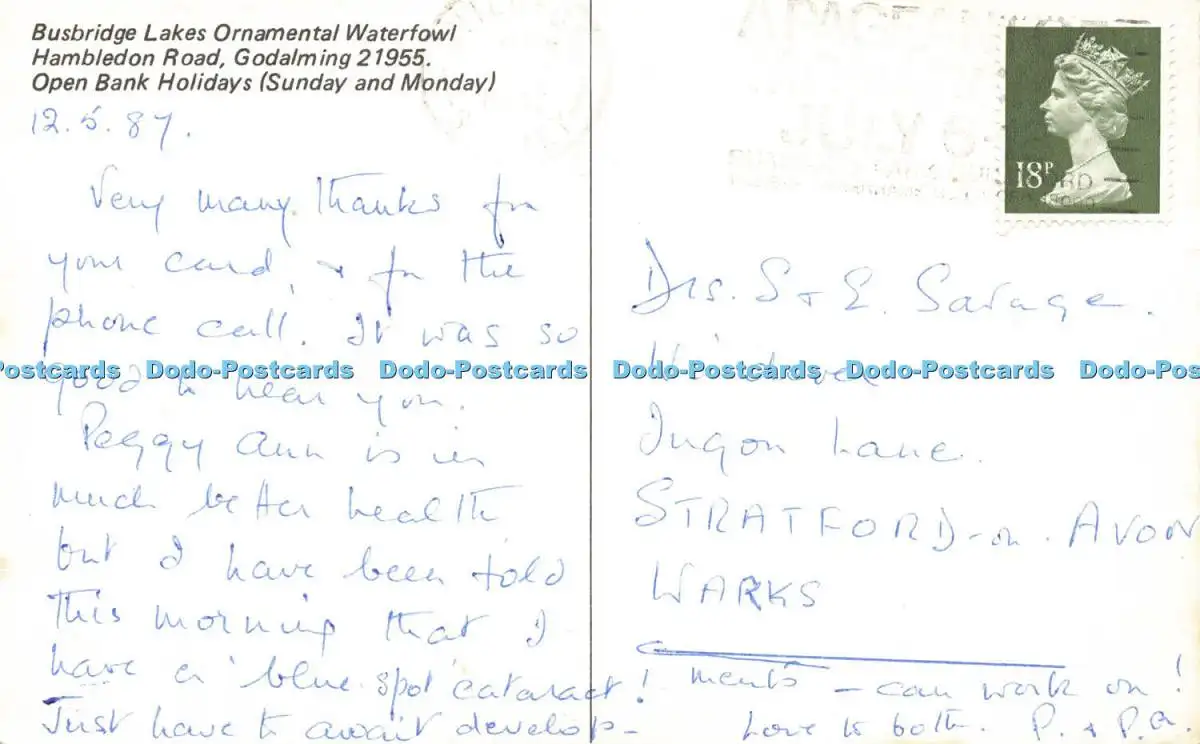 Busbridge Lakes Ornamental Waterfowl
Hambledon Road, Godalming 21955.
Open Bank Holidays (Sunday and Monday)
12.5.87.
Very many thanks for
your card, & for the
phone call. It was so
good to hear you.
Peggy Ann is in
much better health
but I have been told
this morning that I
have a 'blue spot' cataract!
Just have to await develop-
ments — can work on!
Love to both. P. & P.A.
18P
Drs. S & E. Savage.
Ingon Lane.
STRATFORD-on-AVON
WARKS
JULY
Postcards Dodo-Postcards Dodo-Postcards Dodo-Postcards Dodo-Postcards Dodo-Post